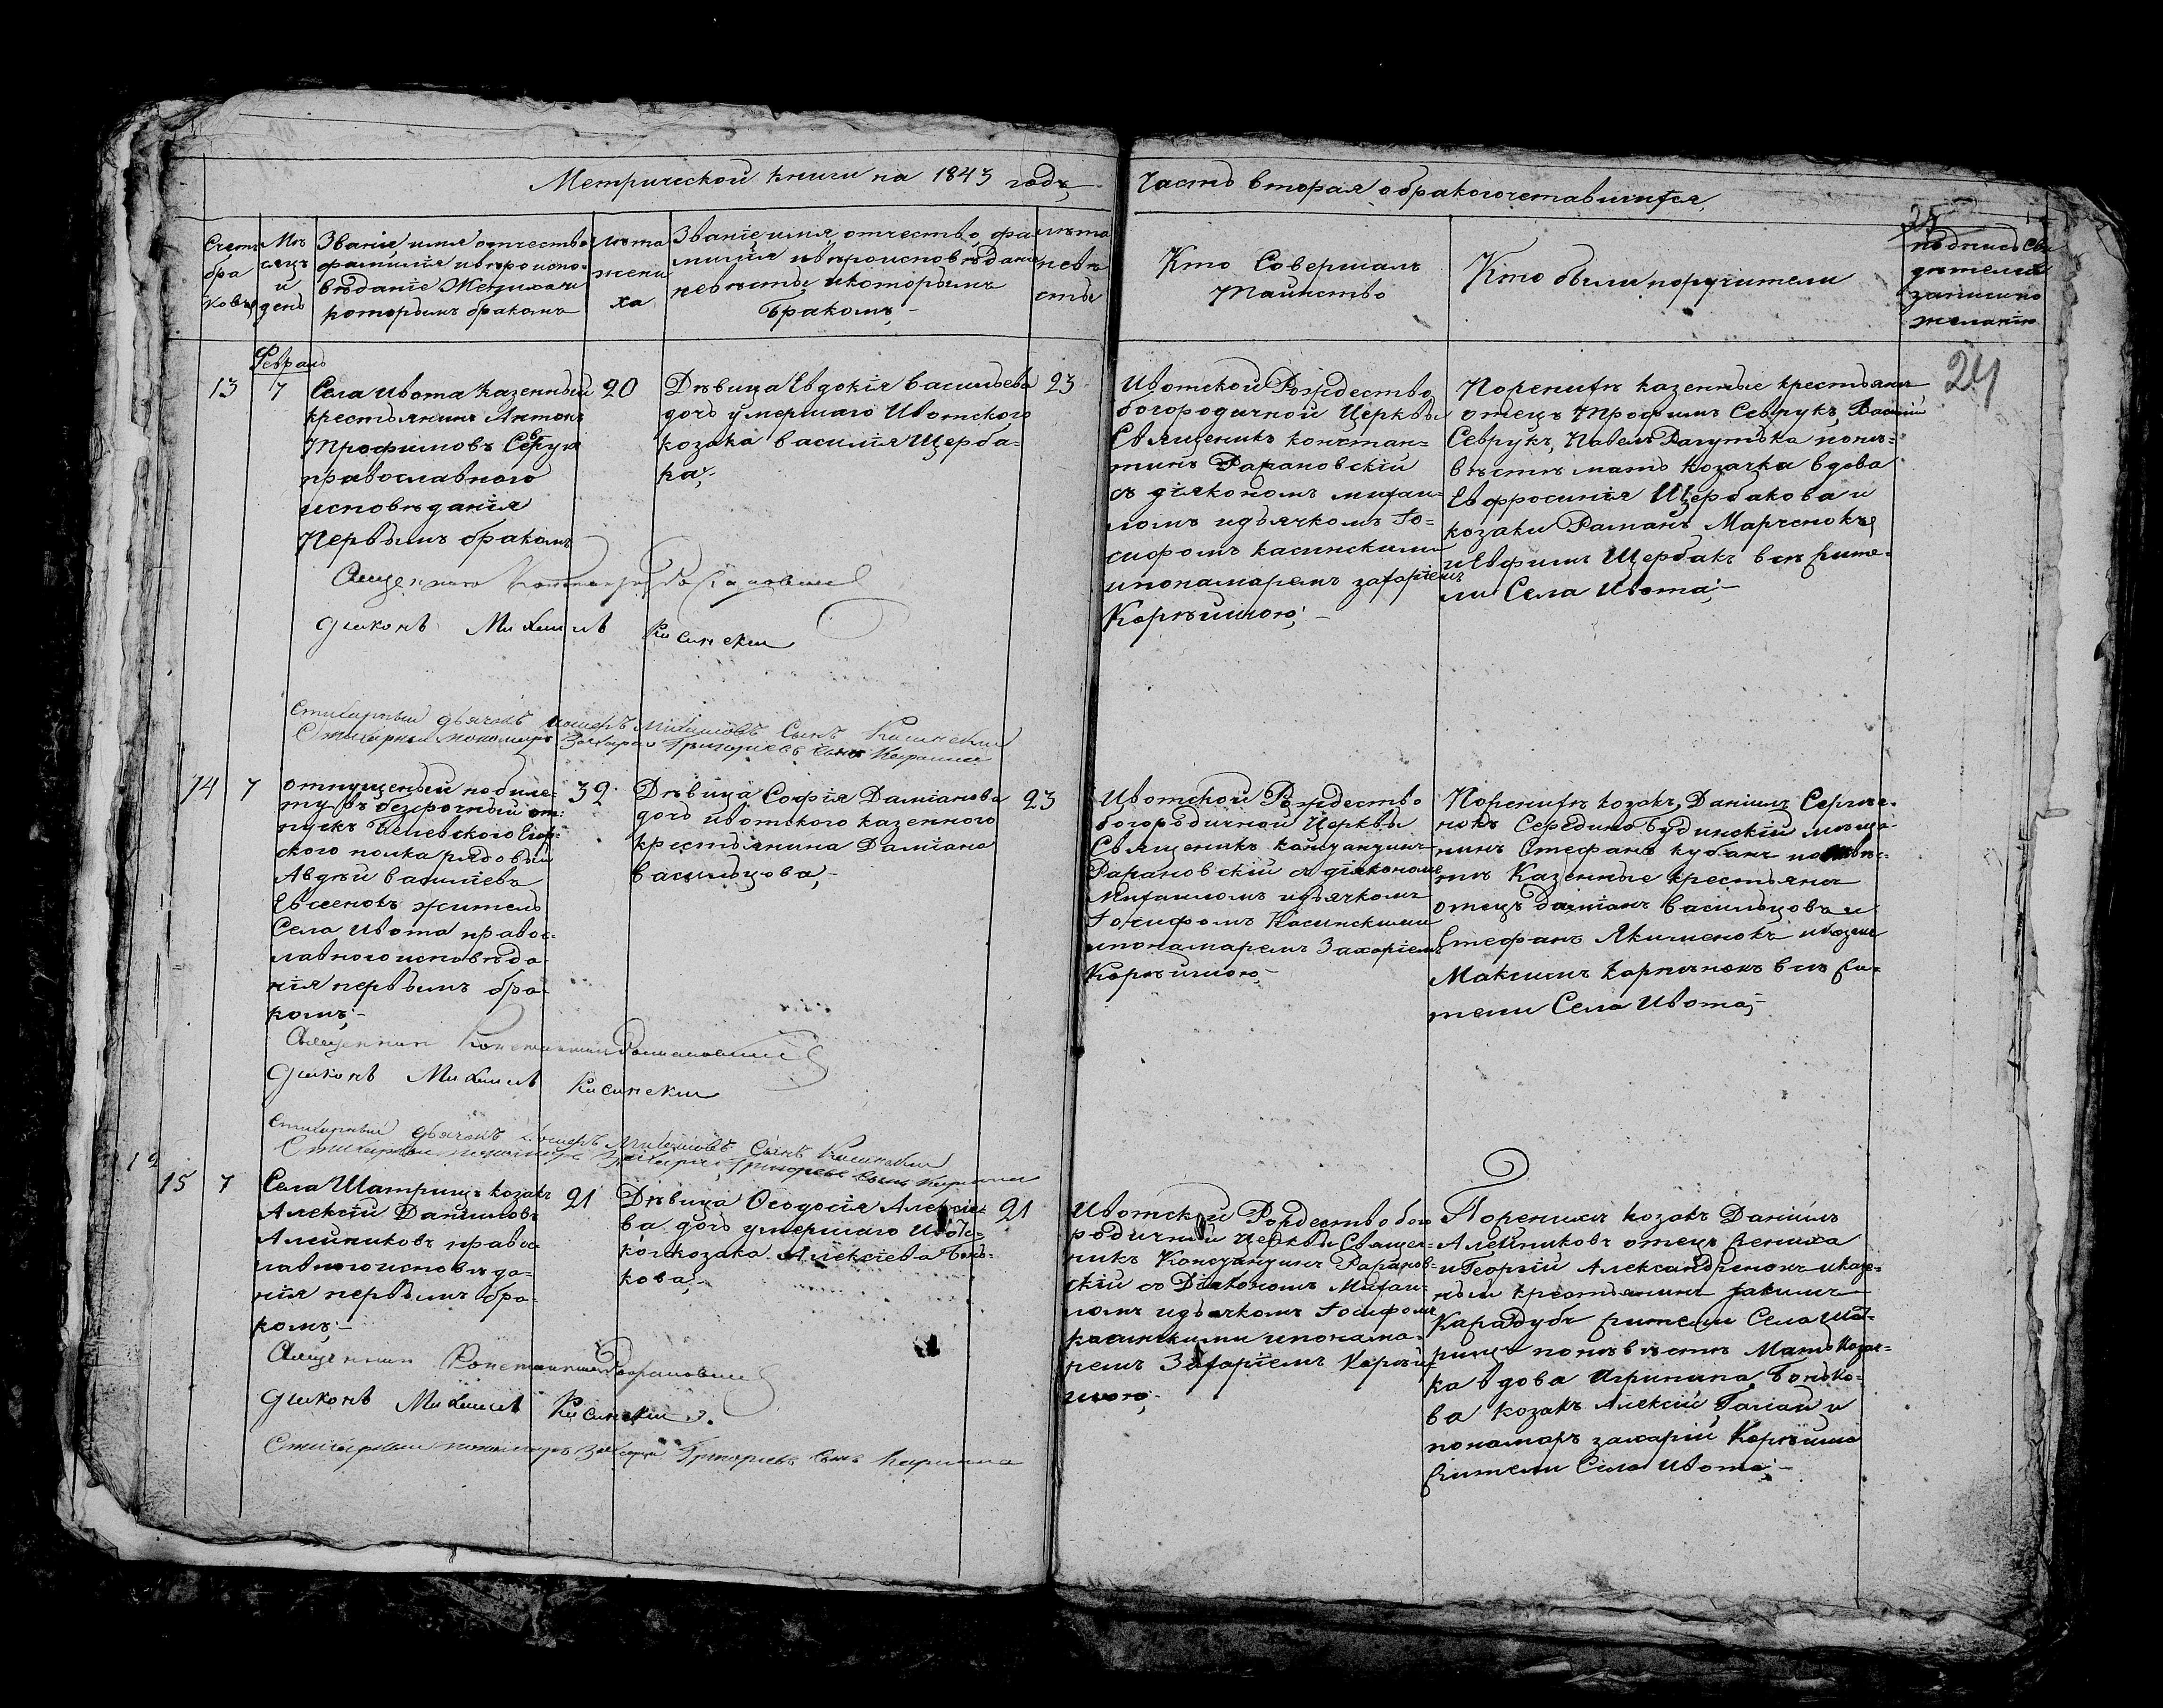 Метрической книги на 1843 годъ
Часть вторая о бракосочетавшихся
Счетъ
бра
ковъ
Мѣ
сяцъ
и
день
Званіе, имя отчество
фамилія и вѣроиспо-
вѣданіе Жениха и
которымъ бракомъ
лѣта
жени
ха
Званіе, имя, отчество, фа-
милія и вѣроисповѣданіе
невѣсты и которымъ
бракомъ
лѣта
невѣ
сты
Кто Совершалъ
Таинство
Кто были поручители
25
подпись сви
дѣтелей
записи по
желанію
24
Февраль
13
7
Села Ивота казенный
крестьянинъ Антонъ
Трофимовъ Севрук
православного
исповѣданія
Первымъ бракомъ
20
Дѣвица Евдокія Васильева
дочь умершаго Ивотского
козака Василія Щерба-
ка
23
Ивотской Рождество
богородичной Церкви
Священикъ Констан-
тинъ Рафановскій
съ діякономъ Михаи-
ломъ и дьячкомъ Іо-
сифомъ Касинскими
и понамаремъ Захаріемъ
Корѣйшою
По женихѣ казенные крестьяни
отецъ Трофимъ Севрукъ, Василій
Севрукъ, Павелъ по не-
вѣстѣ мать козачка вдова
Евфросинія Щербакова и
козаки Раманъ Марченокъ
и Евфимъ Щербакъ всѣ жите-
ли Села Ивота
Священникъ Константинъ Рафановскій
Діяконъ Михаилъ Касинскій
Стихарный дьячокъ Іосифъ Михаиловъ Сынъ Касинскій
Стихарный пономарь Захарій Григоріевъ сынъ
14
7
отпущеный по биле-
ту въ безсрочный от-
пускъ Белевского Егер-
ского полка рядовый
Авдѣй Василіевъ
Евсеенокъ житель
Села Ивота правос-
лавного исповѣда-
нія первымъ бра-
комъ
32
Дѣвица Софія Даміанова
дочь ивотского казенного
крестьянина Даміана
Васильцова
23
Ивотской Рождество
богородичной Церкви
Священикъ Констандинъ
Рафановскій съ діякономъ
Михаиломъ и дьячкомъ
Іосифомъ Касинскими
и понамаремъ Захаріемъ
Корѣйшою
По женихѣ козакъ, Даніилъ Сергѣе-
нокъ Середино Будинскій мѣща-
нинъ Стефанъ Кубанъ по невѣс-
тѣ Казенные крестьяни
отецъ Даміанъ Васильцовъ и
Стефанъ Якименокъ и козакъ
Максимъ Карпенокъ всѣ жи-
тели Села Ивота
Священникъ Константинъ Рафановскій
Діяконъ Михаилъ Касинскій
Стихарный дьячокъ Іосифъ Михаиловъ Сынъ Касинскій
Стихарный пономарь Захарій Григорьевъ сынъ
12
15
7
Села Шатрищъ козакъ
Алексій Даниловъ
Алейниковъ правос-
лавного исповѣда-
нія первымъ бра-
комъ
21
Дѣвица Ѳеодосія Алексіе-
ва дочь умершаго Ивотс-
кого козака Алексіева Бонь-
кова
21
Ивотской Рождество бого
родичной церкви Священ-
никъ Констандинъ Рафанов-
скій со Діякономъ Михаи-
ломъ и дьячкомъ Іосифомъ
Касинскими и понама-
ремъ Захаріемъ Корѣй-
шою
По женихѣ козакъ Даніилъ
Алейниковъ отецъ жениха
и Георгій Александренокъ и казе-
ный крестьянинъ Іакимъ
Карадубъ жители Села Шат-
рищъ по невѣстѣ Мать козач-
ка вдова Агрипина Бонько-
ва козакъ Алексій и
понамарь Захарій Корѣйша
жители Села Ивота
Священникъ Константинъ Рафановскій
Діяконъ Михаилъ Касинскій
Стихарный пономарь Захарій Григорьевъ сынъ